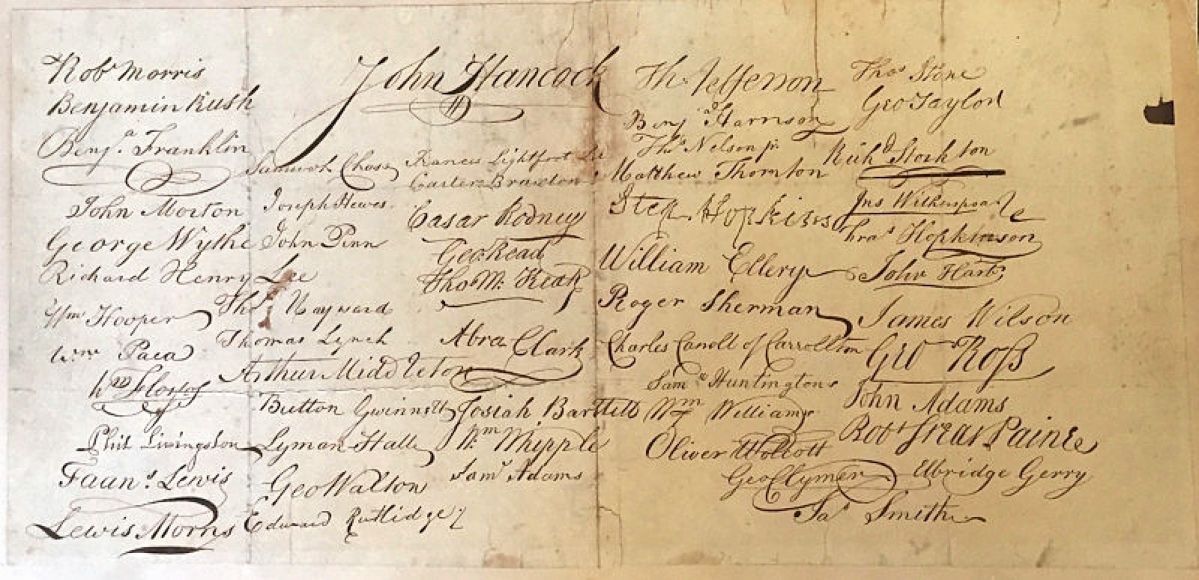 Robt Morris
Benjamin Rush
Benja. Franklin
John Morton
George Wythe
Richard Henry Lee
Wm Hooper
Wm Paca
Wm Floyd
Phil. Livingston
Faans. Lewis
Lewis Morris
John Hancock
H
Samuel Chase
Joseph Hewes
John Penn
Thos Hayward
Thomas Lynch
Arthur Middleton
Button Gwinnett
Lyman Hall
Geo Walton
Edward Rutlidge
Francis Lightfoot Lee
Carter Braxton
Casar Rodney
Geo Read
Tho M: Kean
Abra Clark
Josiah Bartlett
Wm Whipple
Saml Adams
Th Jefferson
Benja Harrison
Thos Nelson jr.
Matthew Thornton
Step. Hopkins
William Ellery
Roger Sherman
Charles Carroll of Carrollton
Saml Huntington
Wm Williams
Oliver Wolcott
Thos Stone
Geo Taylor
Richd Stockton
Jns Witherspoon
Fras Hopkinson
John Hart
James Wilson
Geo Ross
John Adams
Robt Treat Paine
Geo Clymer
Elbridge Gerry
Jas Smith